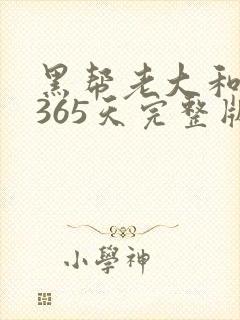 黑帮老大和
365天完整版
小學神